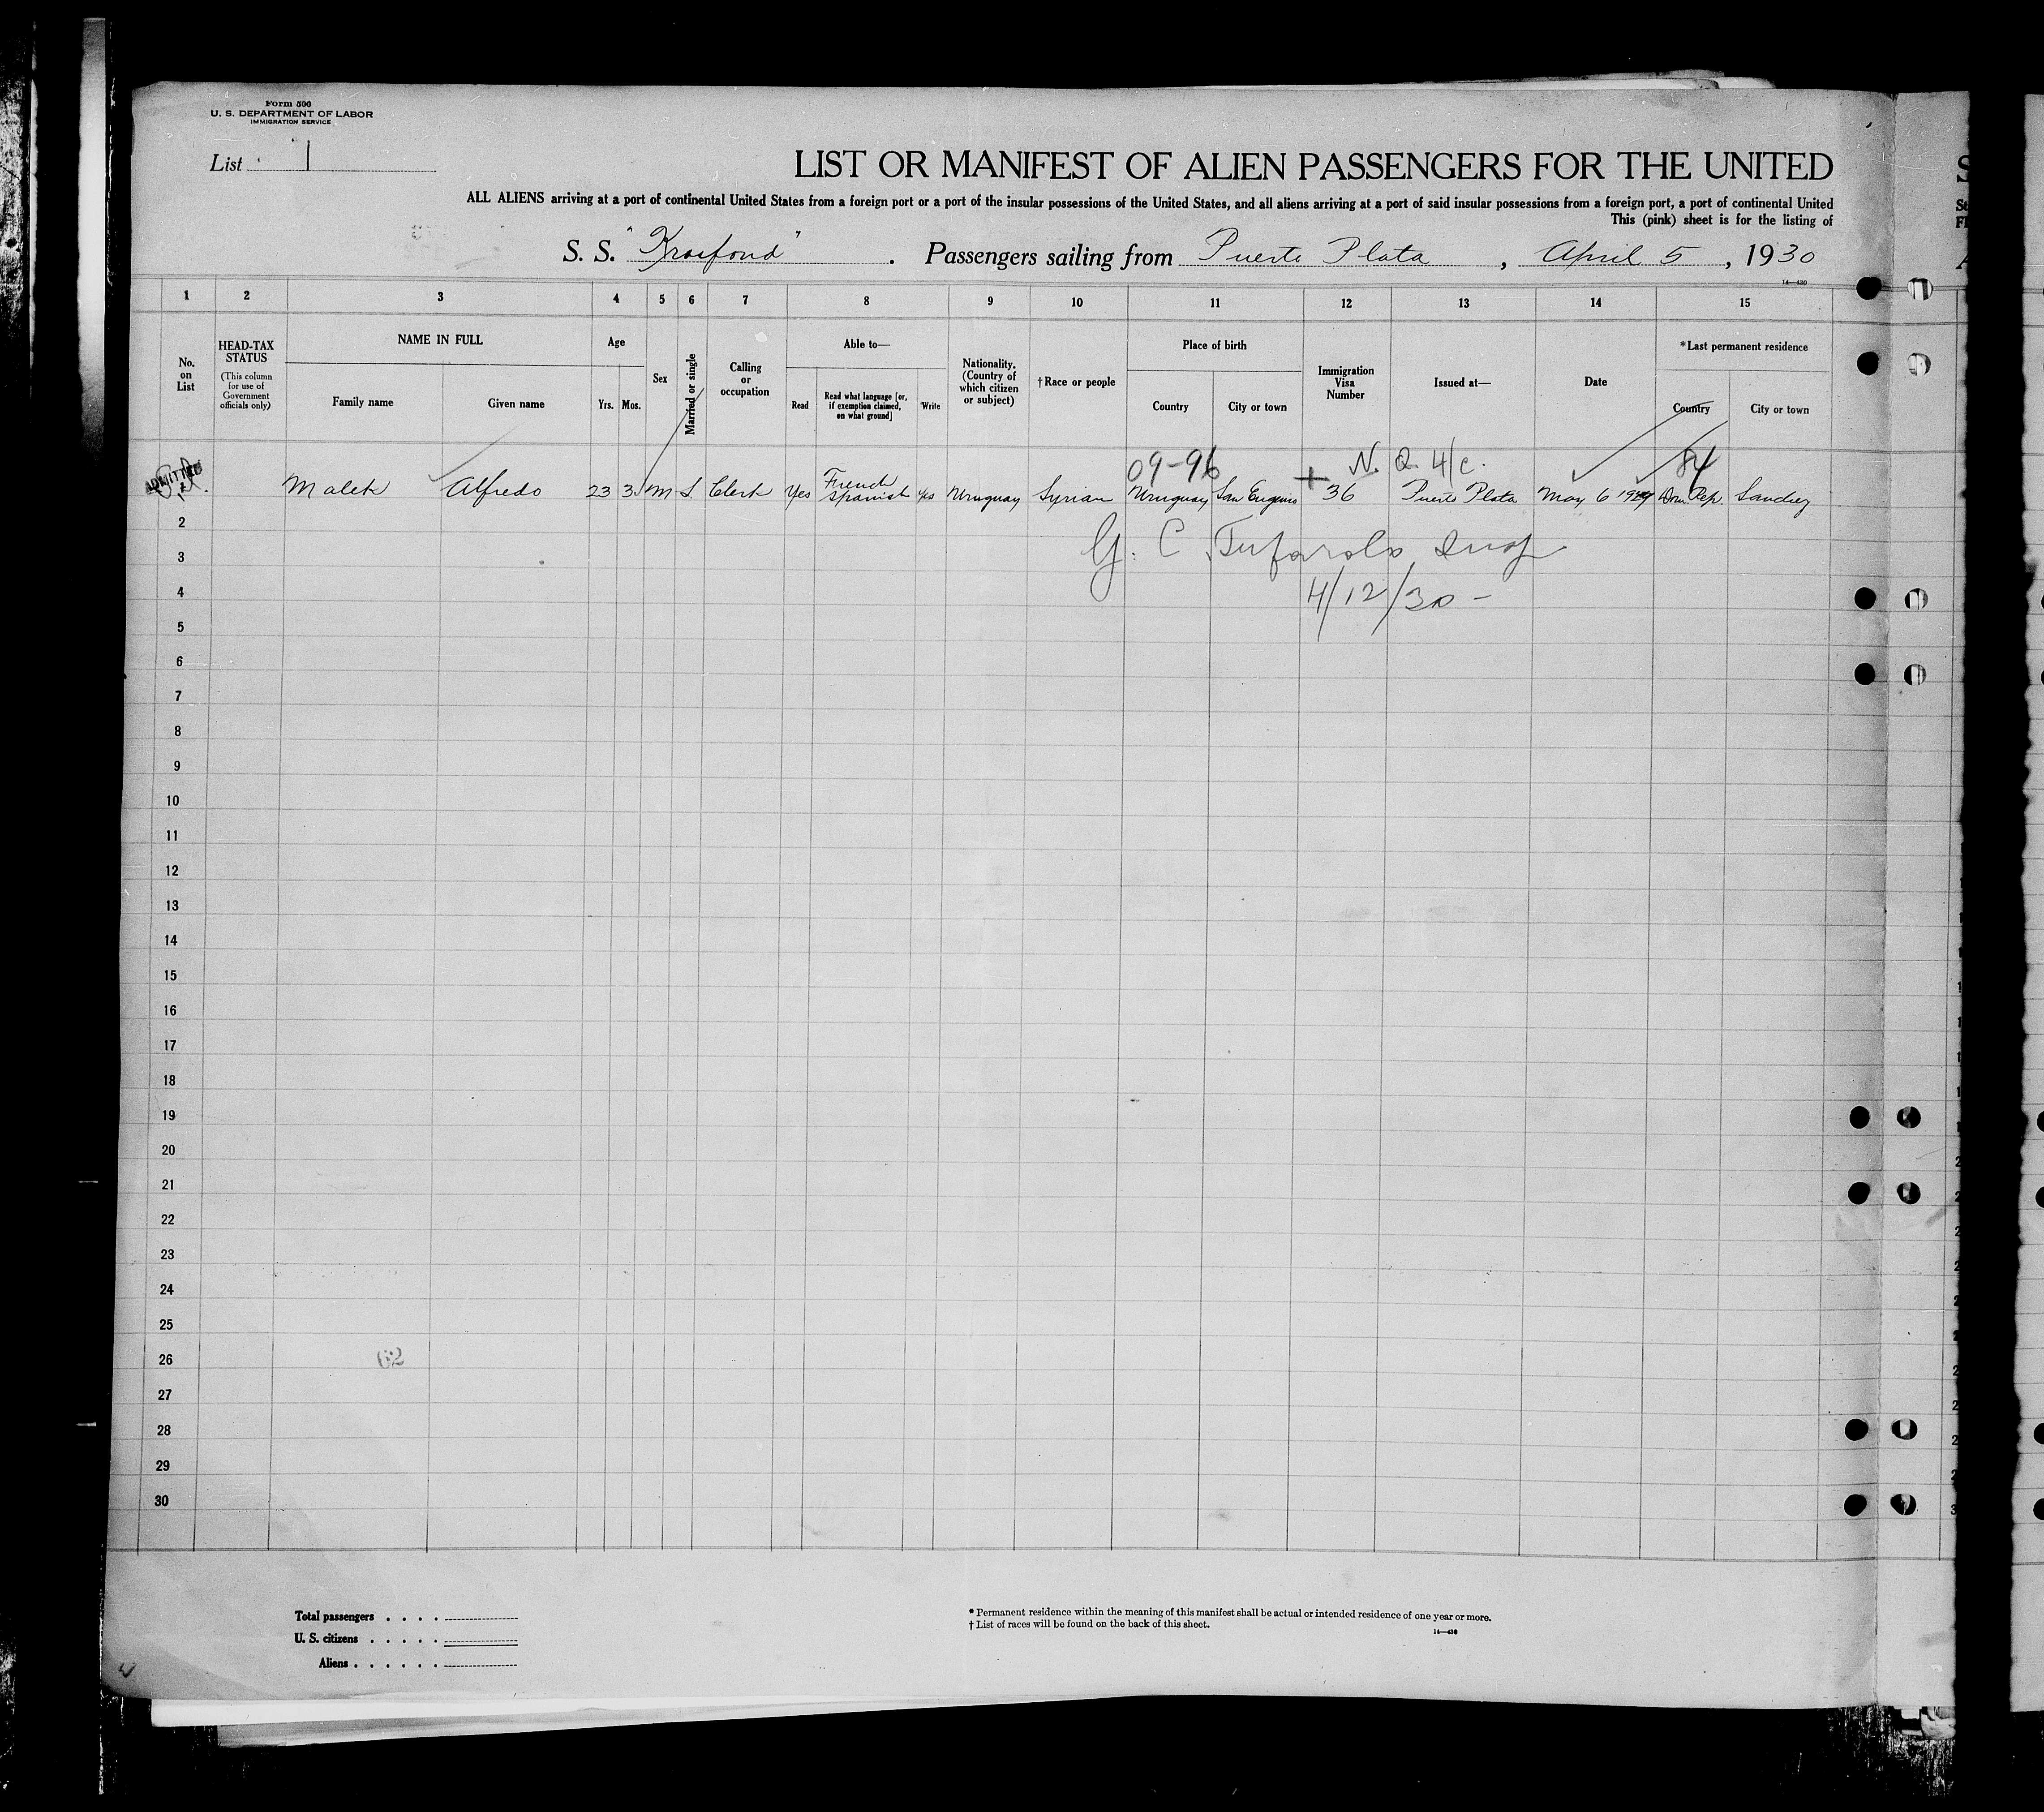 Form 500
U. S. DEPARTMENT OF LABOR
IMMIGRATION SERVICE
List 1
LIST OR MANIFEST OF ALIEN PASSENGERS FOR THE UNITED
ALL ALIENS arriving at a port of continental United States from a foreign port or a port of the insular possessions of the United States, and all aliens arriving at a port of said insular possessions from a foreign port, a port of continental United
This (pink) sheet is for the listing of
S. S. "Krosfond" . Passengers sailing from Puerto Plata , April 5 , 1930
14—430
1 2 3 4 5 6 7 8 9 10 11 12 13 14 15
No. on List
HEAD-TAX STATUS
(This column for use of Government officials only)
NAME IN FULL
Family name Given name
Age
Yrs. Mos.
Sex
Married or single
Calling or occupation
Able to—
Read
Read what language [or, if exemption claimed, on what ground]
Write
Nationality. (Country of which citizen or subject)
†Race or people
Place of birth
Country City or town
Immigration Visa Number
Issued at—
Date
*Last permanent residence
Country City or town
09-96 N. Q. 4/c. 84
ADMITTED
Malek Alfredo 23 3 M S Clerk Yes French Spanish Yes Uruguay Syrian Uruguay San Eugenio 36 Puerto Plata May 6 1929 Dom. Rep. Sanchez
2
G. C. Insp
3
4/12/30 –
4
5
6
7
8
9
10
11
12
13
14
15
16
17
18
19
20
21
22
23
24
25
26
62
27
28
29
30
Total passengers . . . .
U. S. citizens . . . . .
Aliens . . . . . .
* Permanent residence within the meaning of this manifest shall be actual or intended residence of one year or more.
† List of races will be found on the back of this sheet.